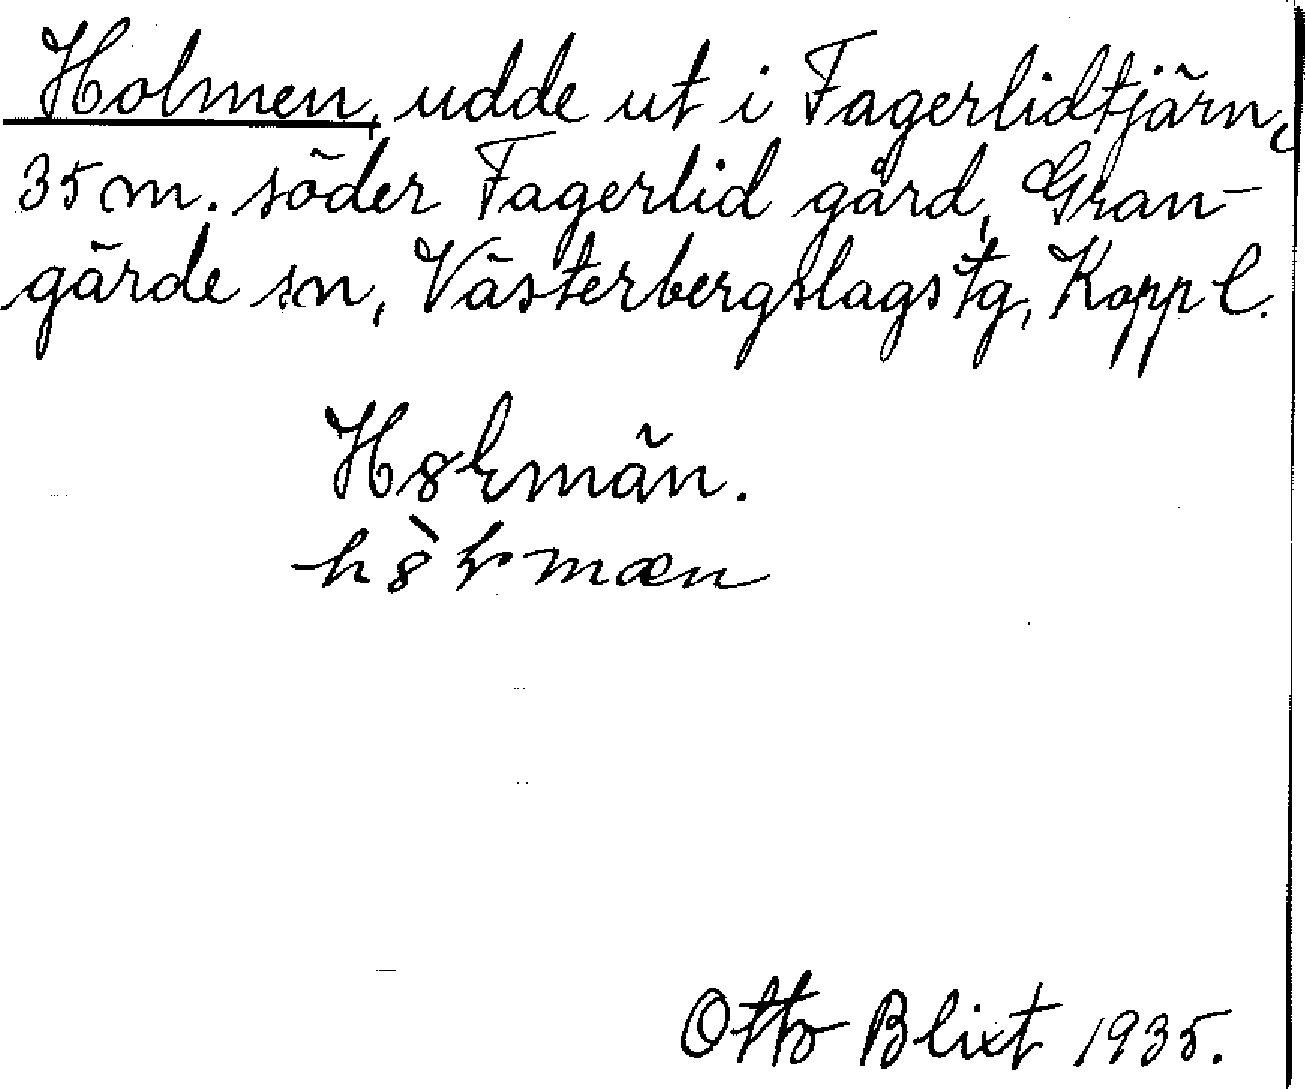 Holmen, udde ut i Fagerlidtjärn,
35 m. söder Fagerlid gård, Gran-
gärde sn, Västerbergslags tg, Kopp l.
Otto Blixt 1935.